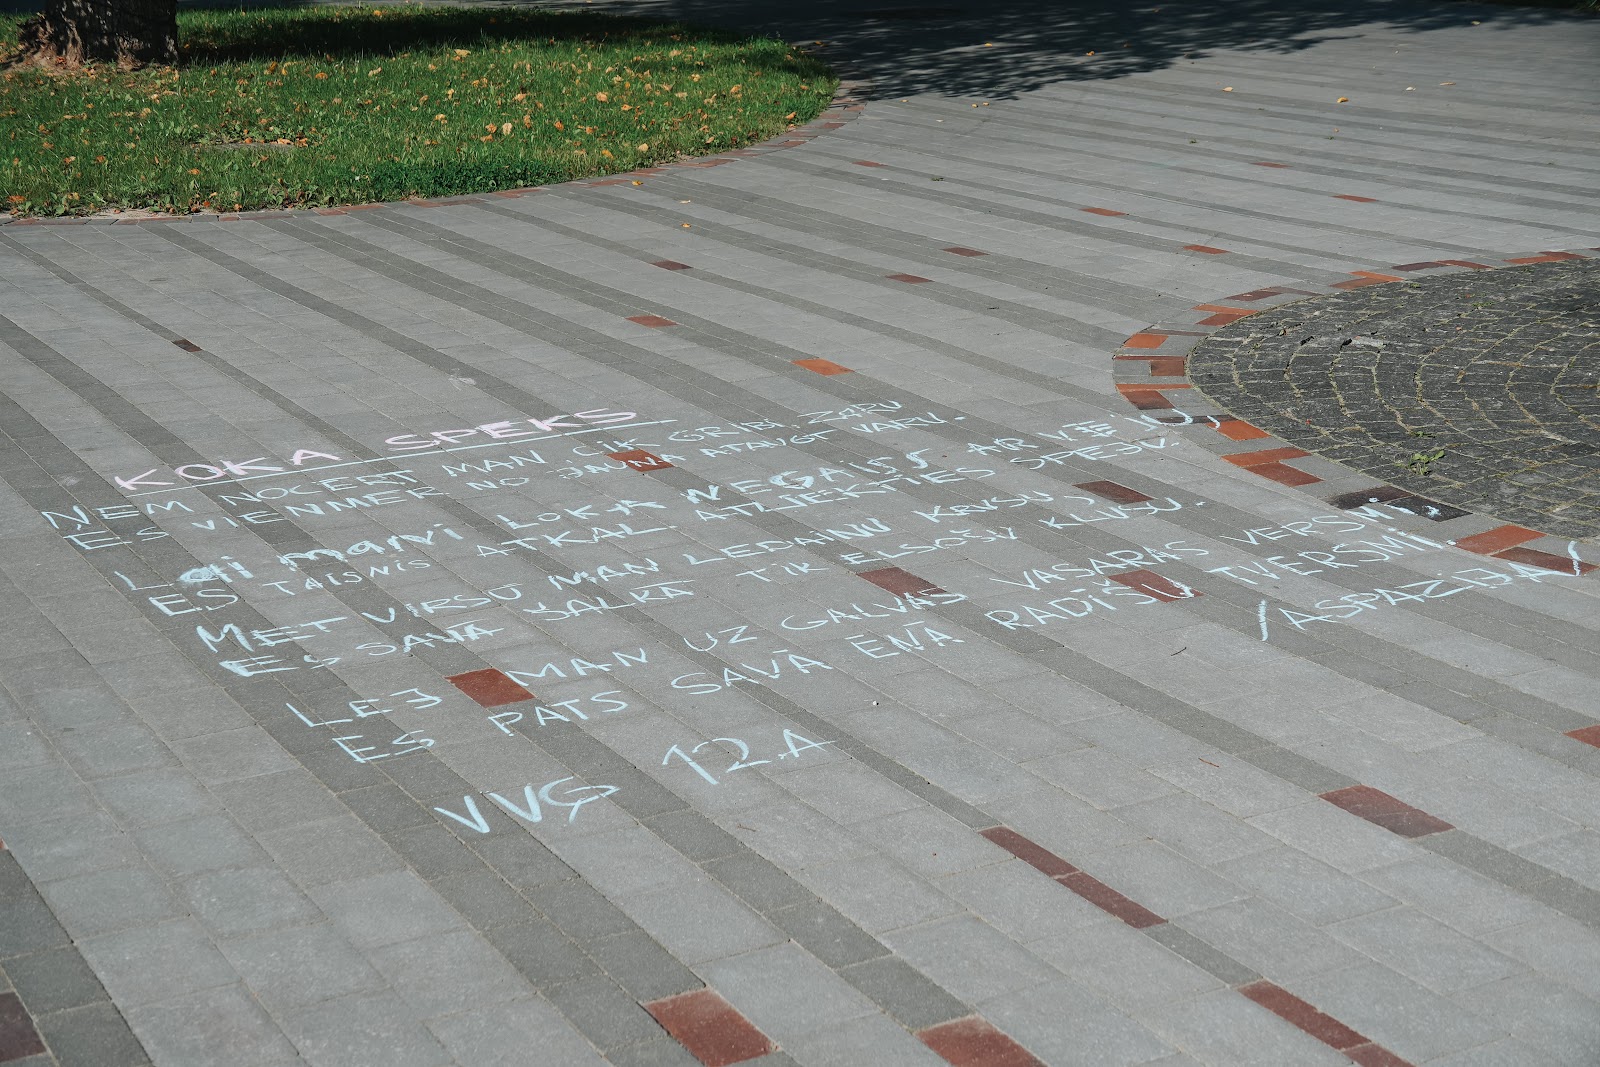 KOKA SPĒKS
ŅEM NOCĒRT MAN, CIK GRIBI, ZARU
ES VIENMĒR NO JAUNA ATAUGT VARU.
Lai mani LOKA NEGAISS AR VĒJU
ES TAISNIS ATKAL ATLIEKTIES SPĒJU.
MET VIRSŪ MAN LEDAINU KRUSU
ES SAVĀ ŠALKĀ TIK ELSOŠU KLUSU.
LEJ MAN UZ GALVAS VASARAS VERSMI,
ES PATS SAVĀ ĒNĀ RADĪŠU TVERSMI.
/ASPAZIJA/
VVĢ 12.A